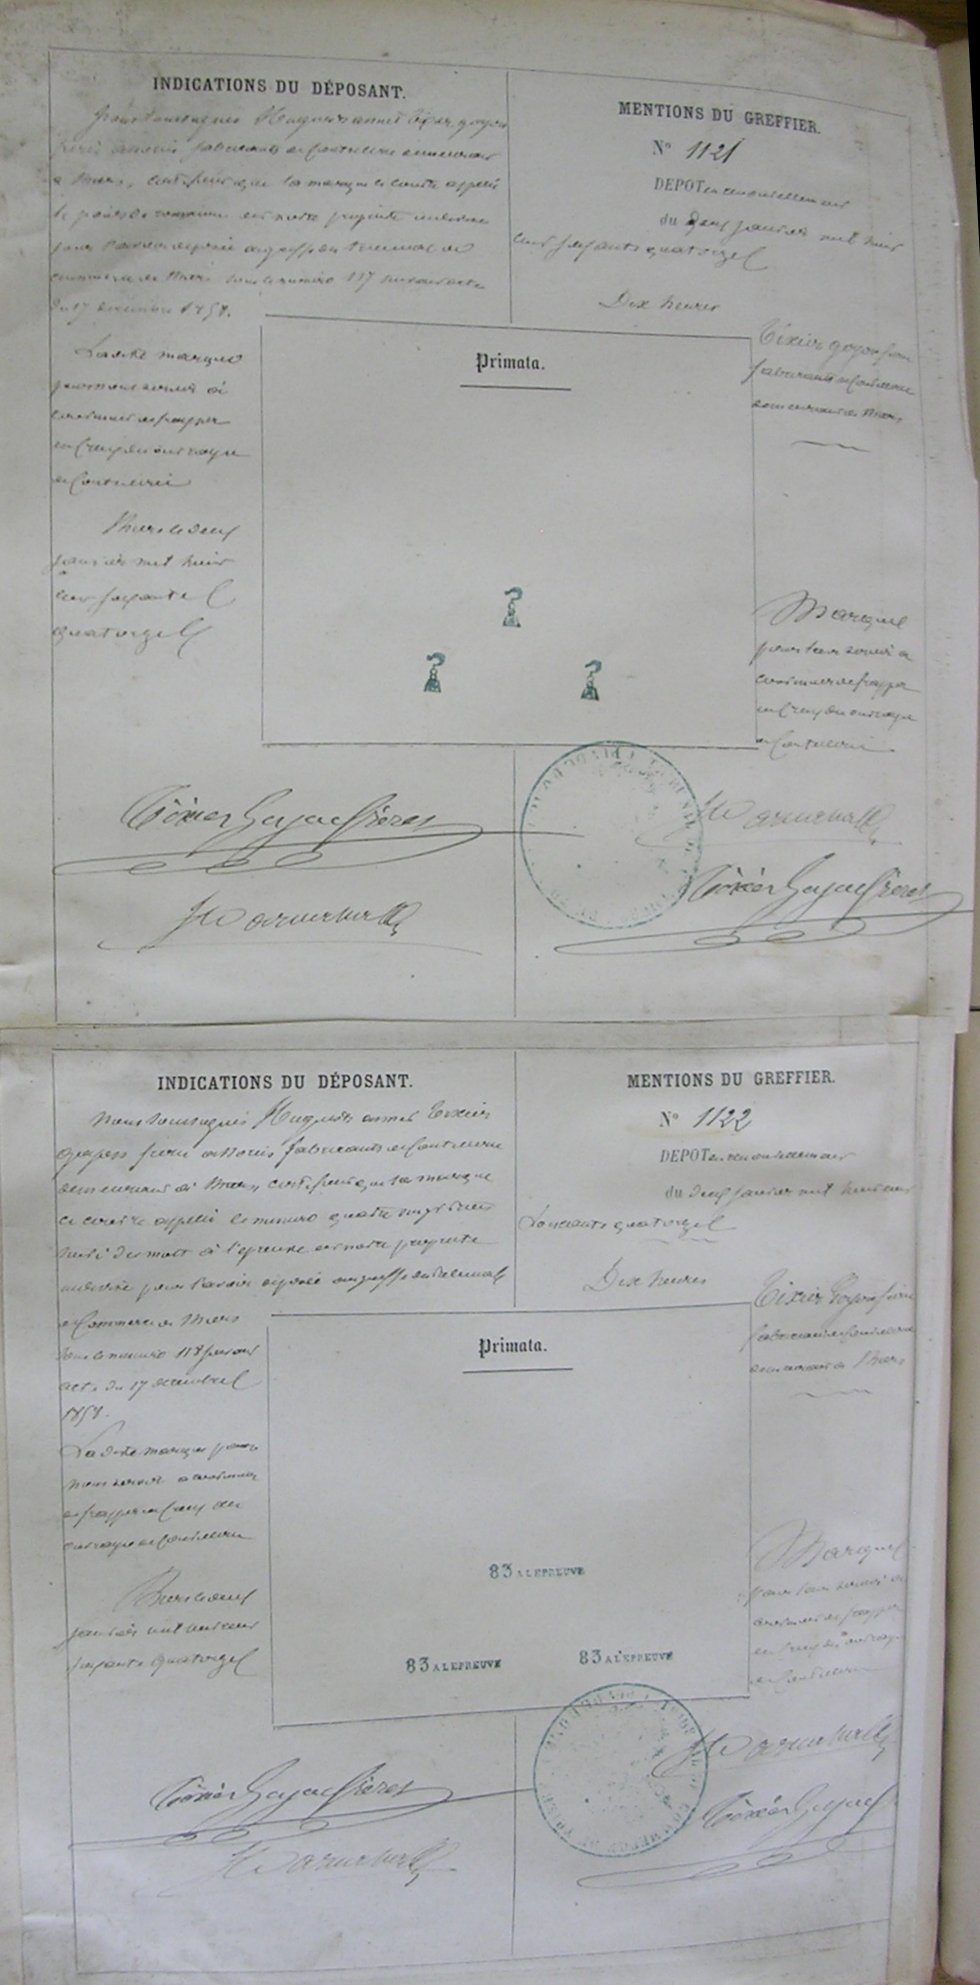 INDICATIONS DU DÉPOSANT.
Nous soussignés Hugues annet Tixier goyon
frères associés fabricants de Coutellerie demeurant
a Thiers, certifions que la marque ci contre appelée
le poids de romaine est notre propriété
pour l'avoir déposée au greffe du tribunal de
commerce de Thiers sous le numéro 117 suivant acte
du 17 decembre 1858.
Ladite marque
pour nous servir à
continuer de frapper
en Creux des ouvrages
de Coutellerie
Thiers le deux
janvier mil huit
cent soixante
quatorze
MENTIONS DU GREFFIER.
N° 1121
DEPOT en renouvellement
du deux janvier mil huit
cent soixante quatorze
Dix heures
Primata.
Tixier goyon frères
fabricants de Coutellerie
demeurant à Thiers
Marque
pour leur servir a
continuer de frapper
en Creux des ouvrages
de Coutellerie
Tixier Goyon frères
Tixier Goyon frères
INDICATIONS DU DÉPOSANT.
Nous soussignés Hugues annet Tixier
goyon frères associés fabricants de Coutellerie
demeurant à Thiers, certifions que la marque
ci contre appelée le numéro quatre vingt trois
suivi des mots à l'epreuve est notre propriété
pour l'avoir déposée au greffe du tribunal
de Commerce de Thiers
sous le numéro 118 suivant
acte du 17 decembre
1858.
Ladite marque pour
nous servir a continuer
de frapper en Creux des
ouvrages de Coutellerie
Thiers le deux
janvier mil huit cent
soixante quatorze
MENTIONS DU GREFFIER.
N° 1122
DEPOT en renouvellement
du deux janvier mil huit cent
soixante quatorze
Dix heures
Primata.
Tixier Goyon frères
fabricants de Coutellerie
demeurant à Thiers
83 A L'EPREUVE
83 A L'EPREUVE
83 A L'EPREUVE
Marque
pour leur servir a
continuer de frapper
en Creux des ouvrages
de Coutellerie
Tixier Goyon frères
Tixier Goyon